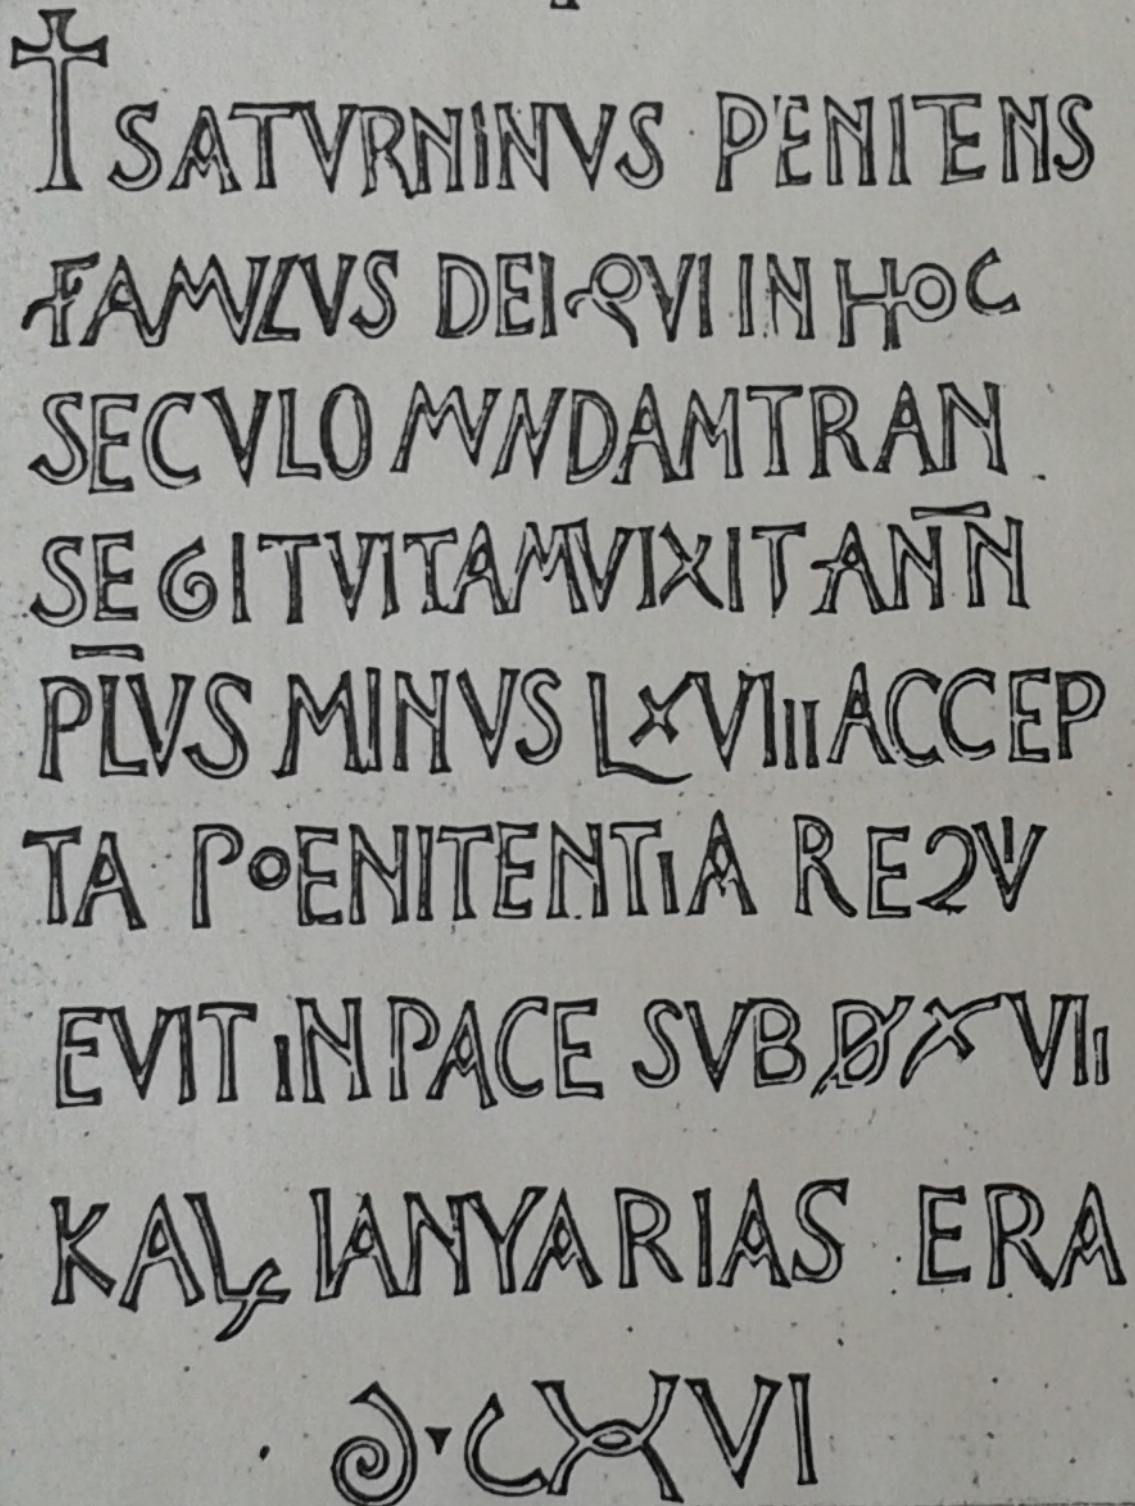 † SATVRNINVS PENITENS
FAMVLVS DEI QVI IN HOC
SECVLO MVNDAM TRAN
SEGIT VITAM VIXIT ANN̅
PL̅VS MINVS LXVIII ACCEP
TA POENITENTIA REQV
EVIT IN PACE SVB D XVII
KAL IANVARIAS ERA
DCXVI